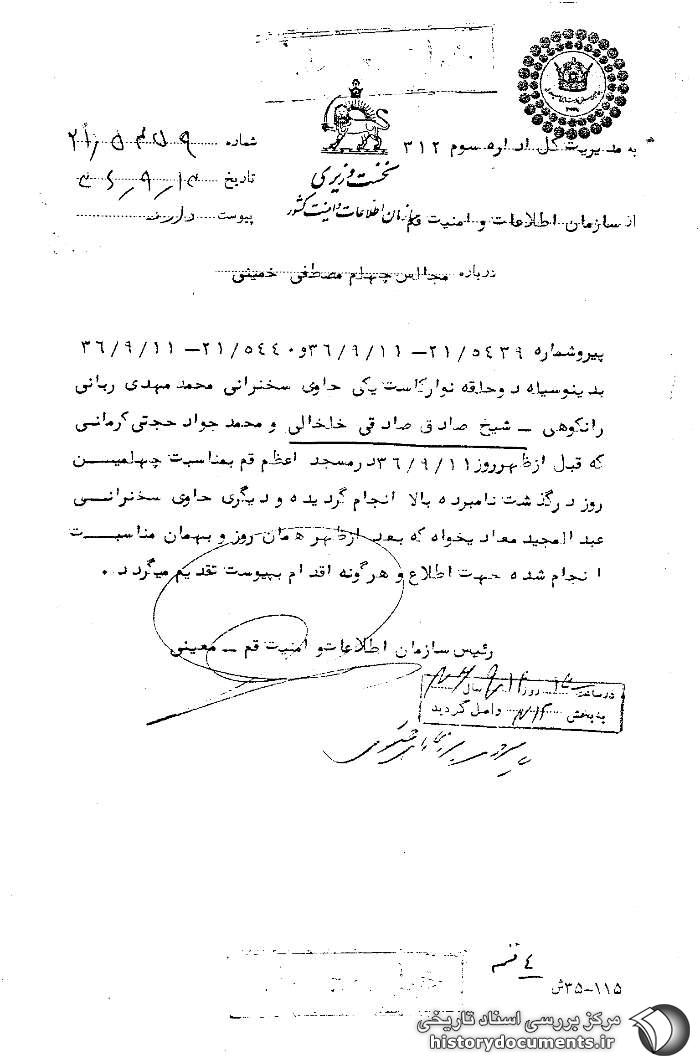 به مدیریت کل اداره سوم ۳۱۲
نخست وزیری
سازمان اطلاعات و امنیت کشور
از سازمان اطلاعات و امنیت قم
شماره ۲۱/۵۴۵۹
تاریخ ۳۶/۹/۱۳
پیوست دارد
درباره مجالس چهلم مصطفی خمینی
پیرو شماره ۲۱/۵۴۳۹ – ۳۶/۹/۱۱ و ۲۱/۵۴۴۰ – ۳۶/۹/۱۱
بدینوسیله دو حلقه نوار کاست یکی حاوی سخنرانی محمد مهدی ربانی
رانکوهی – شیخ صادق صادقی خلخالی و محمد جواد حجتی کرمانی
که قبل از ظهر روز ۳۶/۹/۱۱ در مسجد اعظم قم بمناسبت چهلمین
روز درگذشت نامبرده بالا انجام گردیده و دیگری حاوی سخنرانی
عبدالمجید معادیخواه که بعد از ظهر همان روز و بهمان مناسبت
انجام شده جهت اطلاع و هرگونه اقدام بپیوست تقدیم میگردد .
رئیس سازمان اطلاعات و امنیت قم – معینی
در ساعت روز سال
به بخش ۳۱۲ واصل گردید
٤ نسخه
۱۱۵–۳۵ش
مرکز بررسی اسناد تاریخی
historydocuments.ir